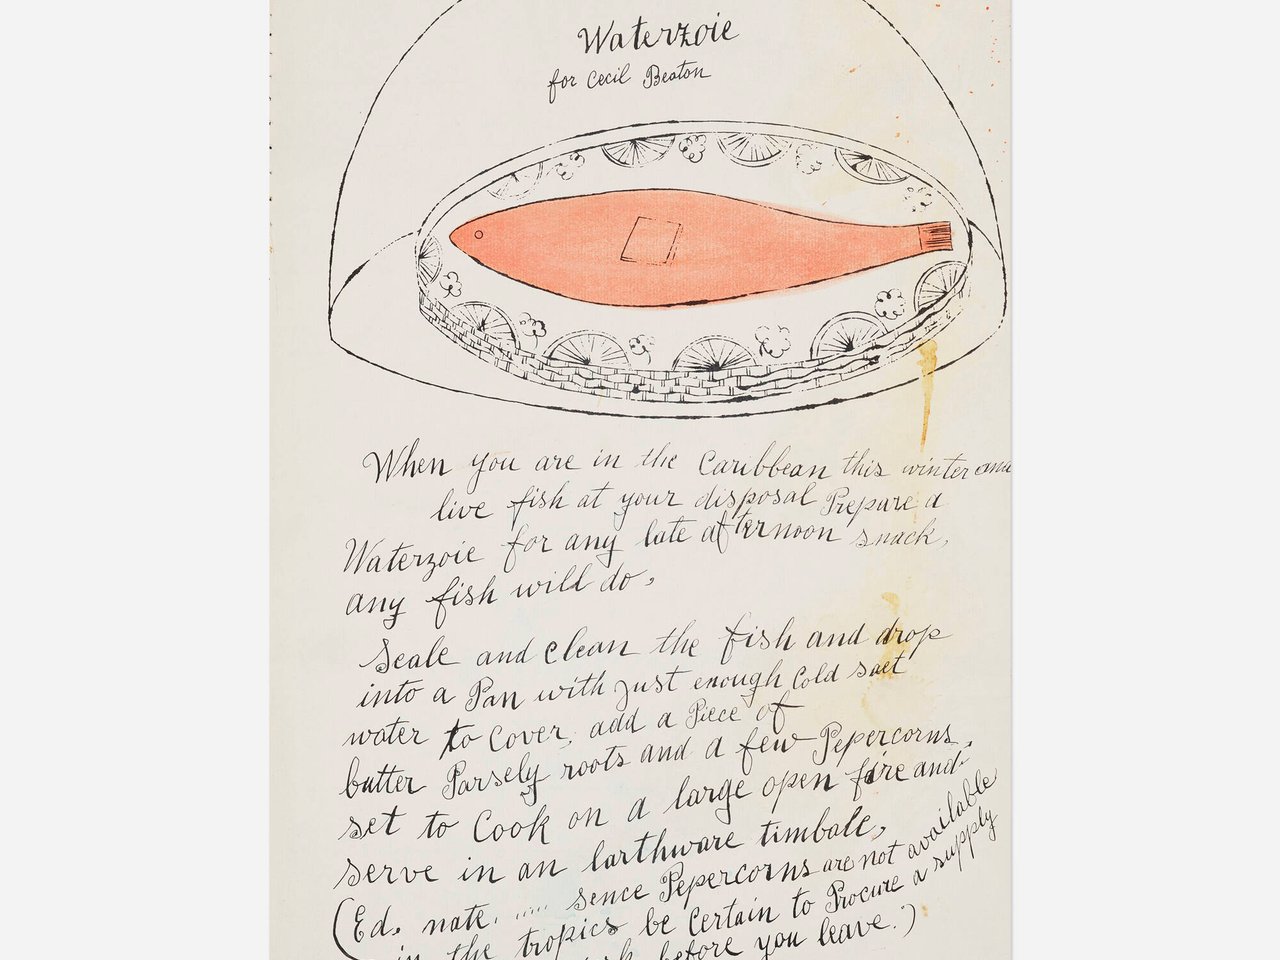 Waterzoie
for Cecil Beaton
When you are in the Caribbean this winter and
live fish at your disposal Prepare a
Waterzoie for any late afternoon snack,
any fish will do,
Scale and clean the fish and drop
into a Pan with just enough Cold salt
water to Cover, add a Piece of
butter Parsely roots and a few Pepercorns,
set to Cook on a large open fire and
serve in an earthware timbale,
(Ed. note. .... sence Pepercorns are not available
in the tropics be Certain to Procure a supply
before you leave.)